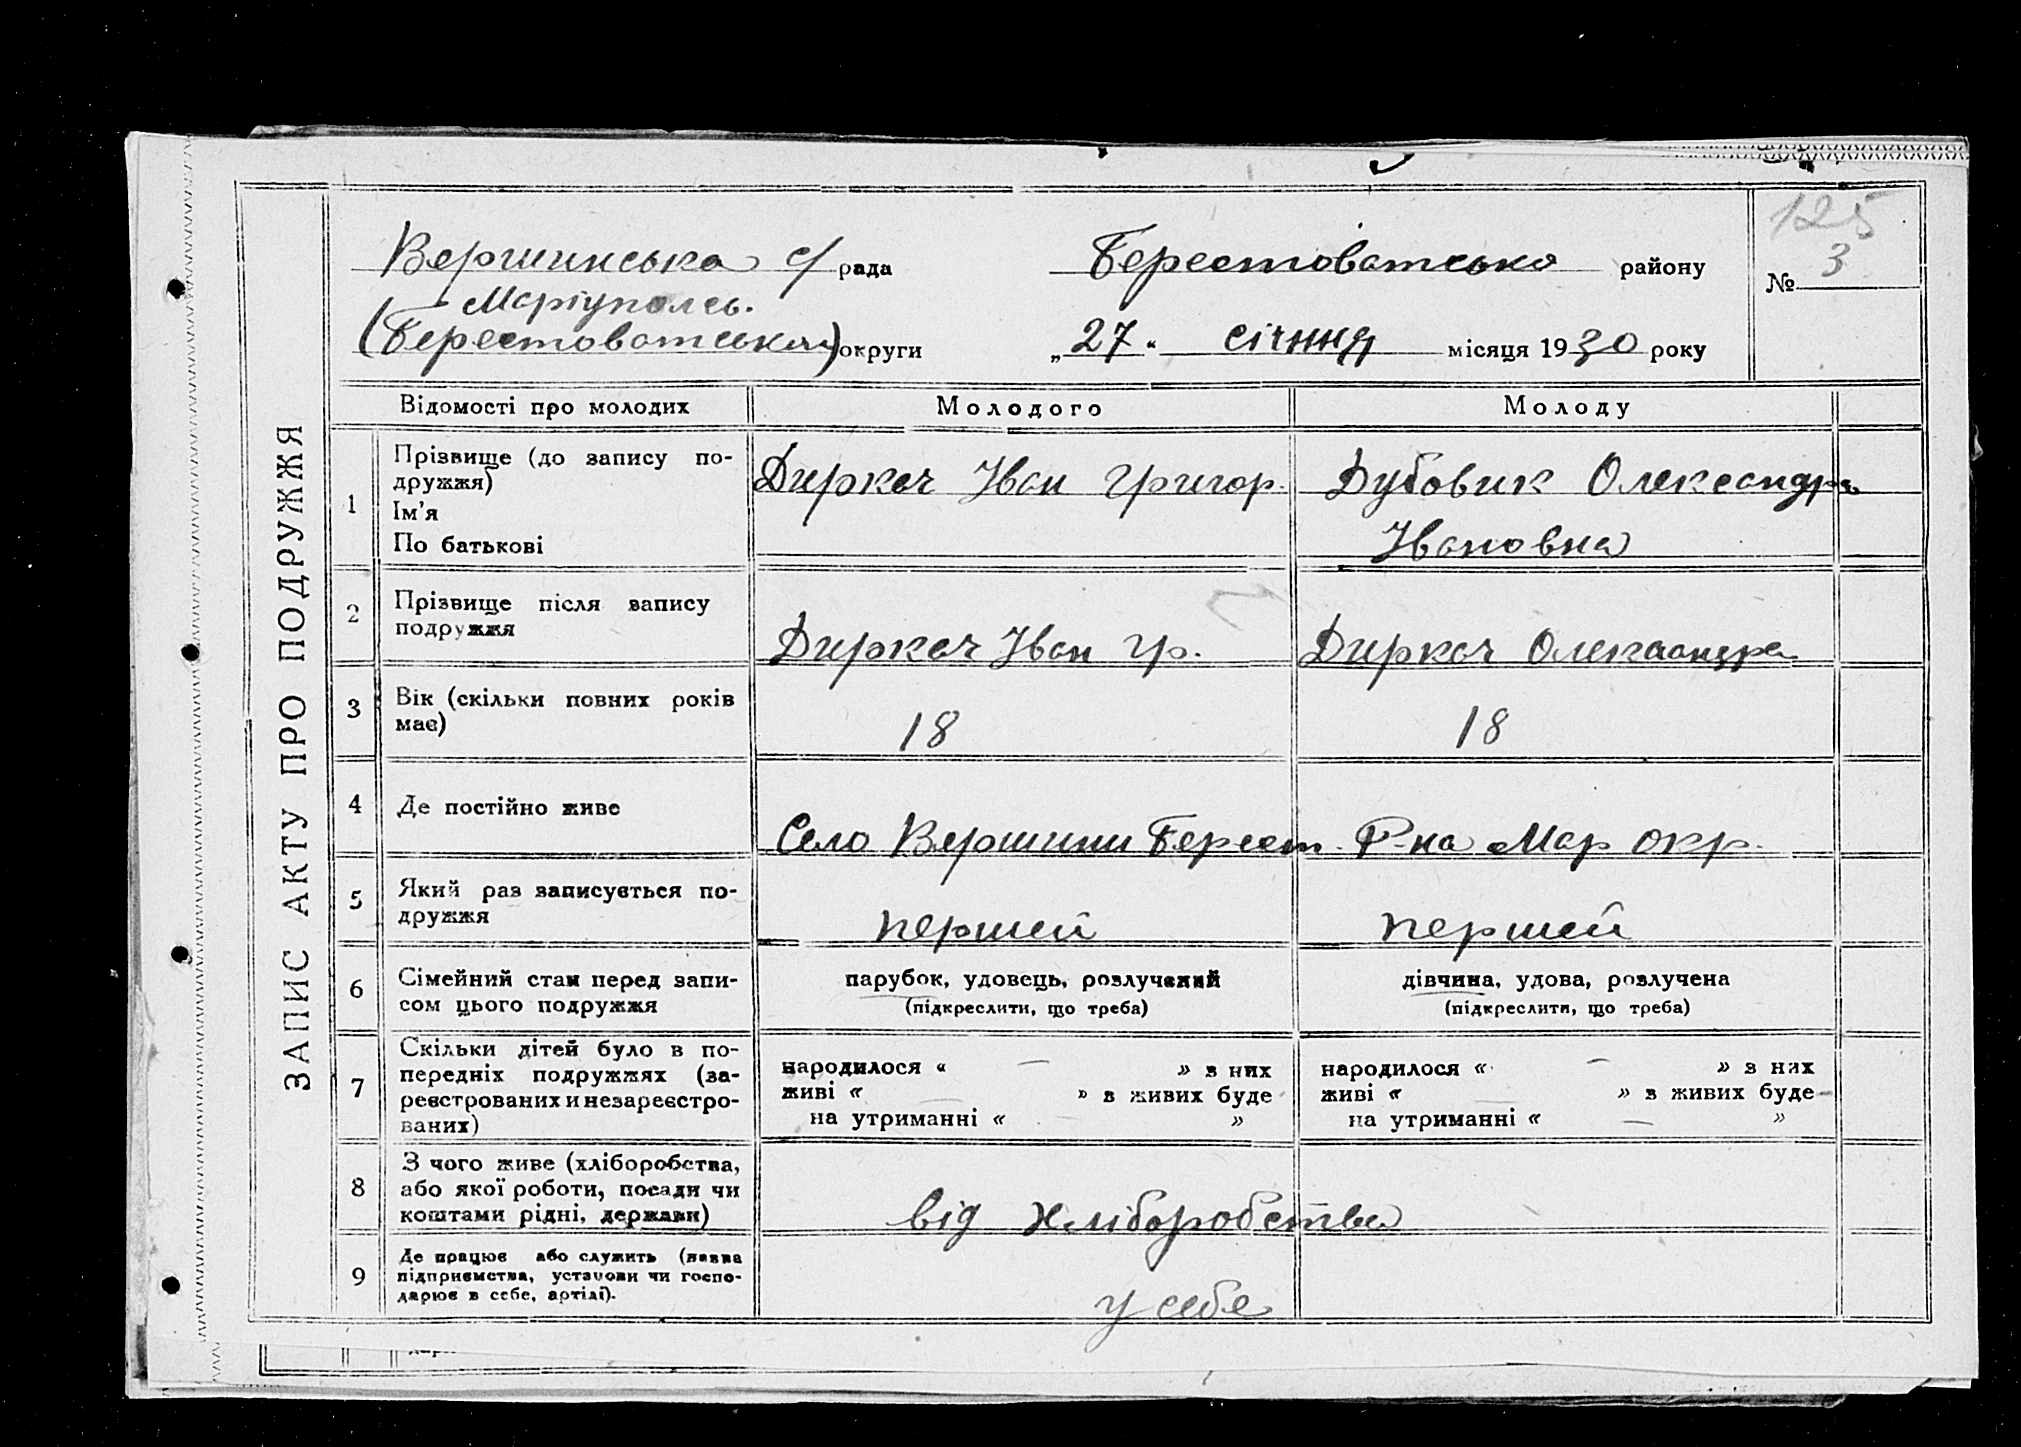 ЗАПИС АКТУ ПРО ПОДРУЖЖЯ
125
Вершинська с/рада Берестоватсько району № 3
Маріупольсь.
(Берестоватська) округи „27“ січня місяця 1930 року
Відомості про молодих Молодого Молоду
1 Прізвище (до запису подружжя) Диркач Іван Григор. Дубовик Олександра
Ім'я
По батькові Івановна
2 Прізвище після запису
подружжя Диркач Іван Гр. Диркач Олександра
3 Вік (скільки повних років
має) 18 18
4 Де постійно живе Село Вершини Берест. Р-на Мар окр.
5 Який раз записується по-
дружжя першей першей
6 Сімейний стан перед запи- парубок, удовець, розлучений дівчина, удова, розлучена
сом цього подружжя (підкреслити, що треба) (підкреслити, що треба)
7 Скільки дітей було в по-
передніх подружжях (за- народилося « — » з них народилося « — » з них
реєстрованих и незареєстро- живі « — » в живих буде живі « — » в живих буде
ваних) на утриманні « » на утриманні « — »
8 З чого живе (хліборобства,
або якої роботи, посади чи
коштами рідні, держави) від хліборобства
9 Де працює або служить (назва
підприємства, установи чи госпо-
дарює в себе, артілі). у себе